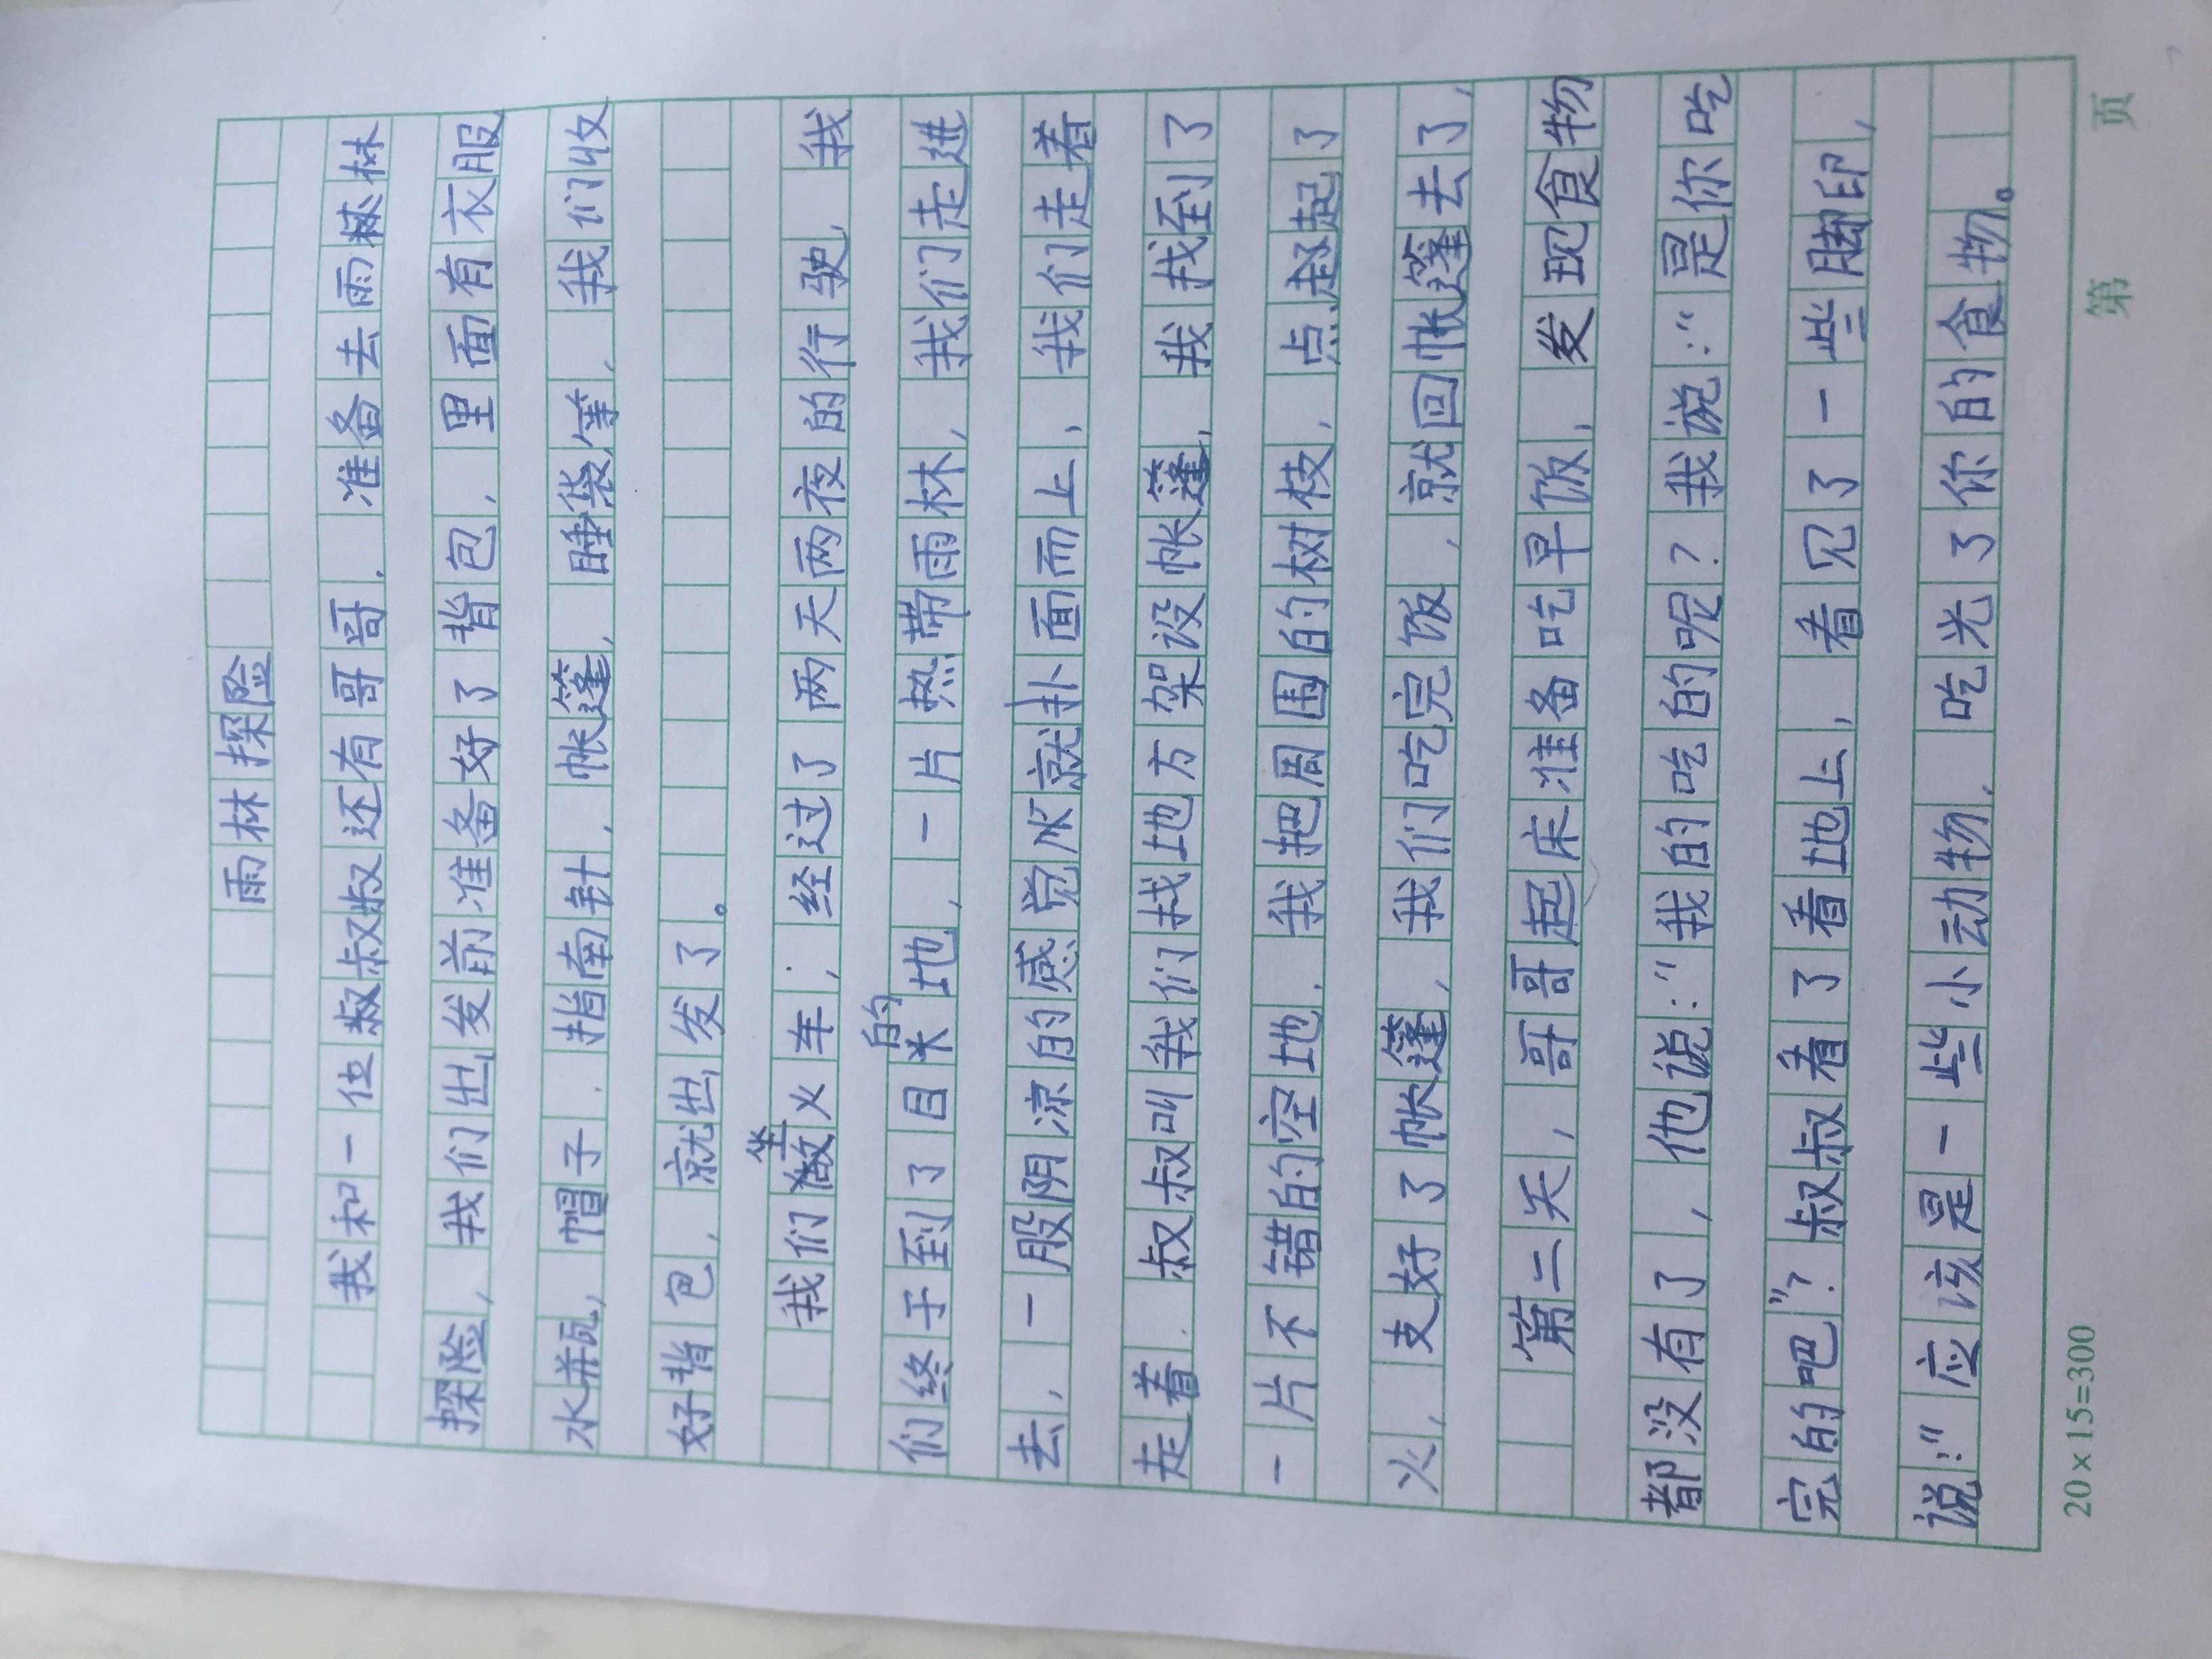 雨林探险
我和一位叔叔还有哥哥，准备去雨林
探险，我们出发前准备好了背包，里面有衣服
水瓶，帽子，指南针，帐篷，睡袋等，我们收
好背包，就出发了。
我们坐火车，经过了两天两夜的行驶，我
们终于到了目的地，一片热带雨林，我们走进
去，一股阴凉的感觉就扑面而上，我们走着
走着，叔叔叫我们找地方架设帐篷，我找到了
一片不错的空地，我把周围的树枝，点起了
火，支好了帐篷，我们吃完饭，就回帐篷去了，
第二天，哥哥起床准备吃早饭，发现食物
都没有了，他说：“我的吃的呢？我说：“是你吃
完的吧”？叔叔看了看地上，看见了一些脚印，
说：“应该是一些小动物，吃光了你的食物。
20×15=300
第 页